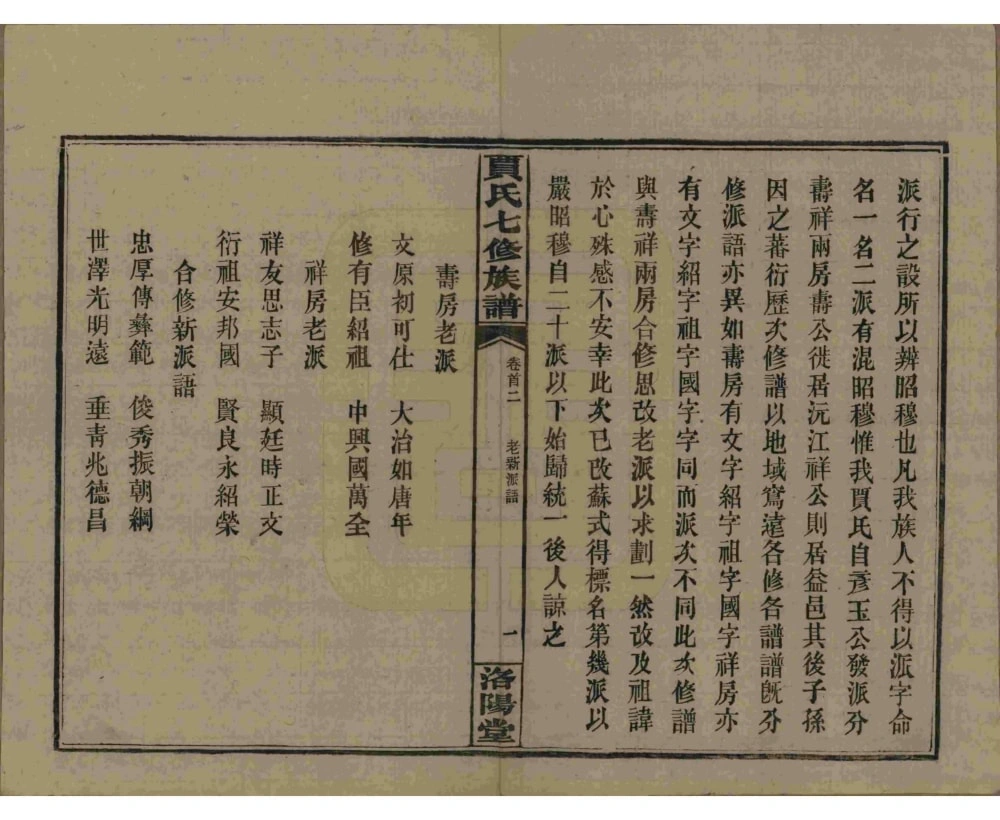 派行之設所以辨昭穆也凡我族人不得以派字命
名一名二派有混昭穆惟我賈氏自彥玉公發派分
壽祥兩房壽公徙居沅江祥公則居益邑其後子孫
因之蕃衍歷次修譜以地域窵遠各修各譜譜旣分
修派語亦異如壽房有文字紹字祖字國字祥房亦
有文字紹字祖字國字字同而派次不同此次修譜
與壽祥兩房合修思改老派以求劃一然改及祖諱
於心殊感不安幸此次已改蘇式得標名第幾派以
嚴昭穆自二十派以下始歸統一後人諒之
賈氏七修族譜
卷首二
老新派語
一
洛陽堂
壽房老派
文原初可仕 大治如唐年
修有臣紹祖 中興國萬全
祥房老派
祥友思志子 顯廷時正文
衍祖安邦國 賢良永紹榮
合修新派語
忠厚傳彝範 俊秀振朝綱
世澤光明遠 垂靑兆德昌